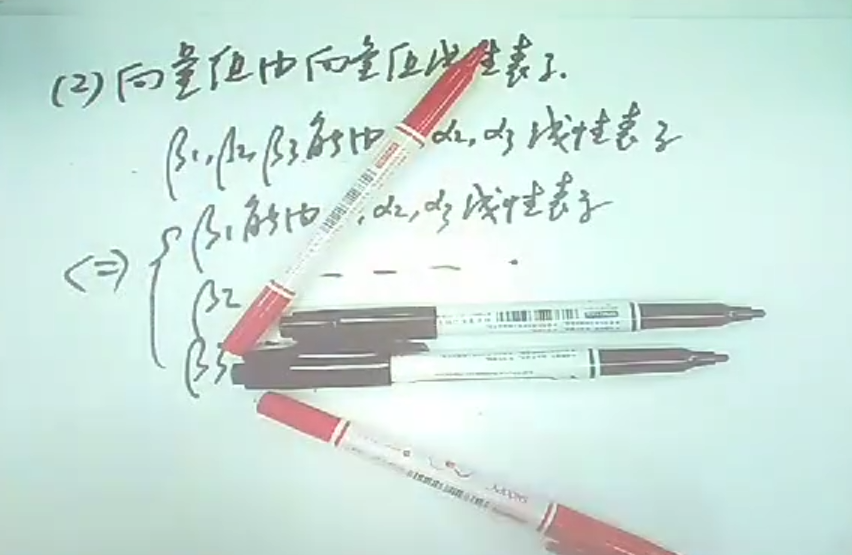 (2) 向量组由向量组线性表示.
β1,β2,β3能由 α2,α3线性表示
β1能由 ,α2,α3线性表示
<=> { β2 — — — .
β3
SNOOPY